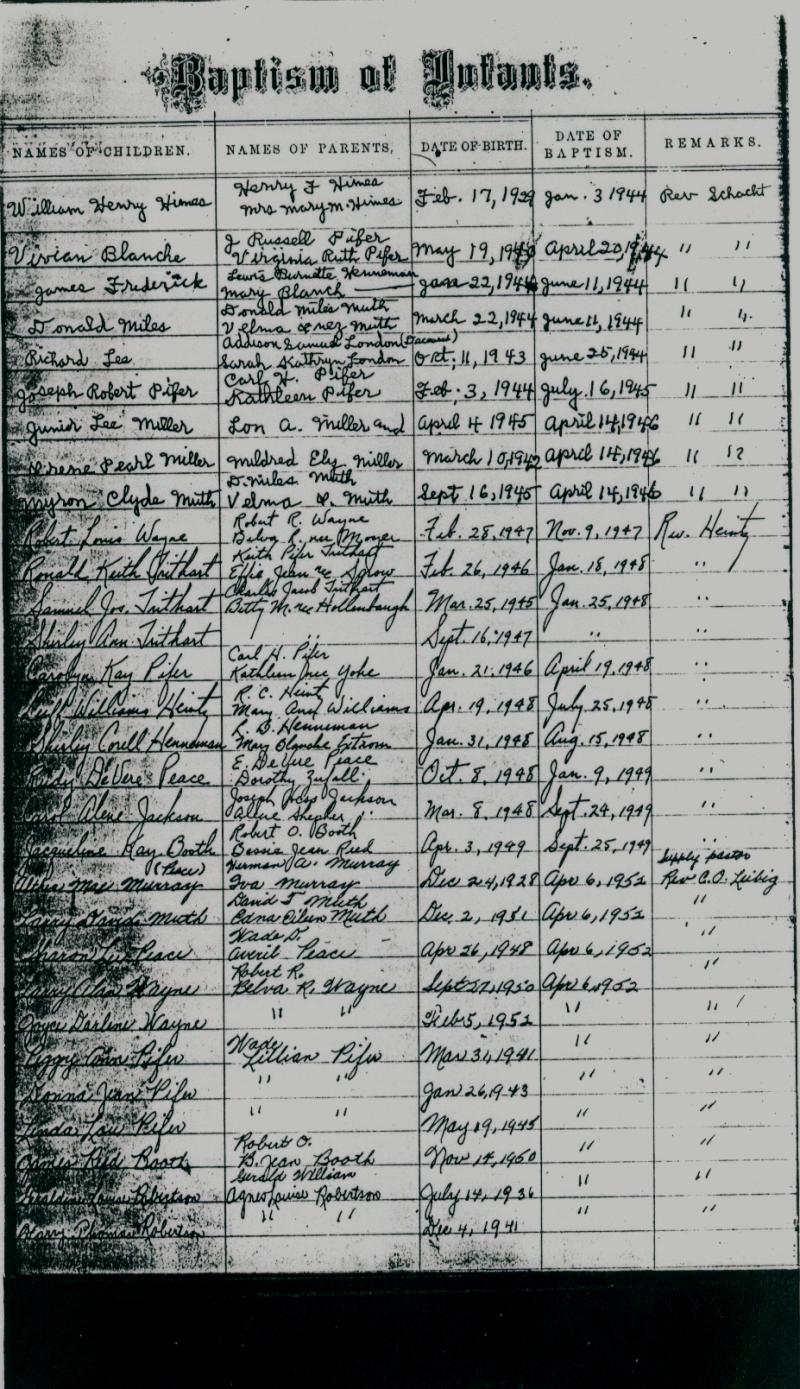 Baptism of Infants.
NAMES OF CHILDREN. NAMES OF PARENTS, DATE OF BIRTH. DATE OF BAPTISM. REMARKS.
Henry F Himes
William Henry Himes Mrs Mary M. Himes Feb. 17, 1929 Jan. 3 1944 Rev Schacht
J Russell Pifer
Vivian Blanche Virginia Ruth Pifer May 19, April 20, " "
Lewis Burnette Henneman
James Frederick Mary Blanch — Jan 22, 1944 June 11, 1944 " "
Donald Miles Muth
Donald Miles Velma Inez Muth March 22, 1944 June 11, 1944 " "
Addison Samuel London (Deceased)
Richard Lee Sarah Kathryn London Oct. 11, 1943 June 25, 1944 " "
Carl H. Pifer
Joseph Robert Pifer Kathleen Pifer Feb. 3, 1944 July. 16, 1945 " "
Junior Lee Miller Lon A. Miller and April 4 1945 April 14, 1946 " "
Irene Pearl Miller Mildred Ely Miller March 10, 1942 April 14, 1946 " "
D. Miles Muth
Myron Clyde Muth Velma I. Muth Sept 16, 1945 April 14, 1946 " "
Robert R. Wayne
Robert Louis Wayne Belva R. nee Moyer Feb. 28, 1947 Nov. 9, 1947 Rev. Heintz
Keith Pifer Trithart
Ronald Keith Trithart Effie Jean nee Feb. 26, 1946 Jan. 18, 1948 "
Charles Jacob Trithart
Samuel Jos. Trithart Betty M. nee Hollenbaugh Mar. 25, 1945 Jan. 25, 1948 "
Shirley Ann Trithart " Sept. 16, 1947 " "
Carl H. Pifer
Carolyn Kay Pifer Kathleen nee Yohe Jan. 21, 1946 April 19, 1948 "
R. C. Heintz
Williams Heintz Mary Ann Williams Apr. 19, 1948 July 25, 1948 "
L. B. Henneman
Shirley Henneman Mary Blanche Jan. 31, 1948 Aug. 15, 1948 "
E. DeVere Peace
DeVere Peace Dorothy Zufall Oct. 8, 1948 Jan. 9, 1949 "
Joseph Jackson
Carol Alene Jackson Alene Mar. 8, 1948 Sept. 24, 1949 "
Robert O. Booth
Jacqueline Kay Booth Bessie Jean Reed Apr. 3, 1949 Sept. 25, 1949 "
(Peace) Herman A. Murray Supply pastor
Mae Murray Iva Murray Dec 24, 1928 Apr 6, 1952 Rev C. O. Leibig
David T Muth
Larry David Muth Edna Eileen Muth Dec. 2, 1951 Apr 6, 1952 "
Wade D.
Sharon Lee Peace Averil Peace Apr 26, 1948 Apr 6, 1952 "
Robert R.
Larry Wayne Belva R. Wayne Sept 27, 1950 Apr 6, 1952 "
Joyce Darlene Wayne " " Feb 5, 1952 " "
Wade
Peggy Ann Pifer Lillian Pifer Mar 31, 1941 " "
Donna Jean Pifer " " Jan 26, 1943 " "
Linda Lou Pifer " " May 19, 1945 " "
Robert O.
James Reed Booth B. Jean Booth Nov 14, 1950 " "
Gerald William
Geraldine Louise Robertson Agnes Louise Robertson July 14, 1936 " "
Harry Thomas Robertson " " Dec 4, 1941 " "